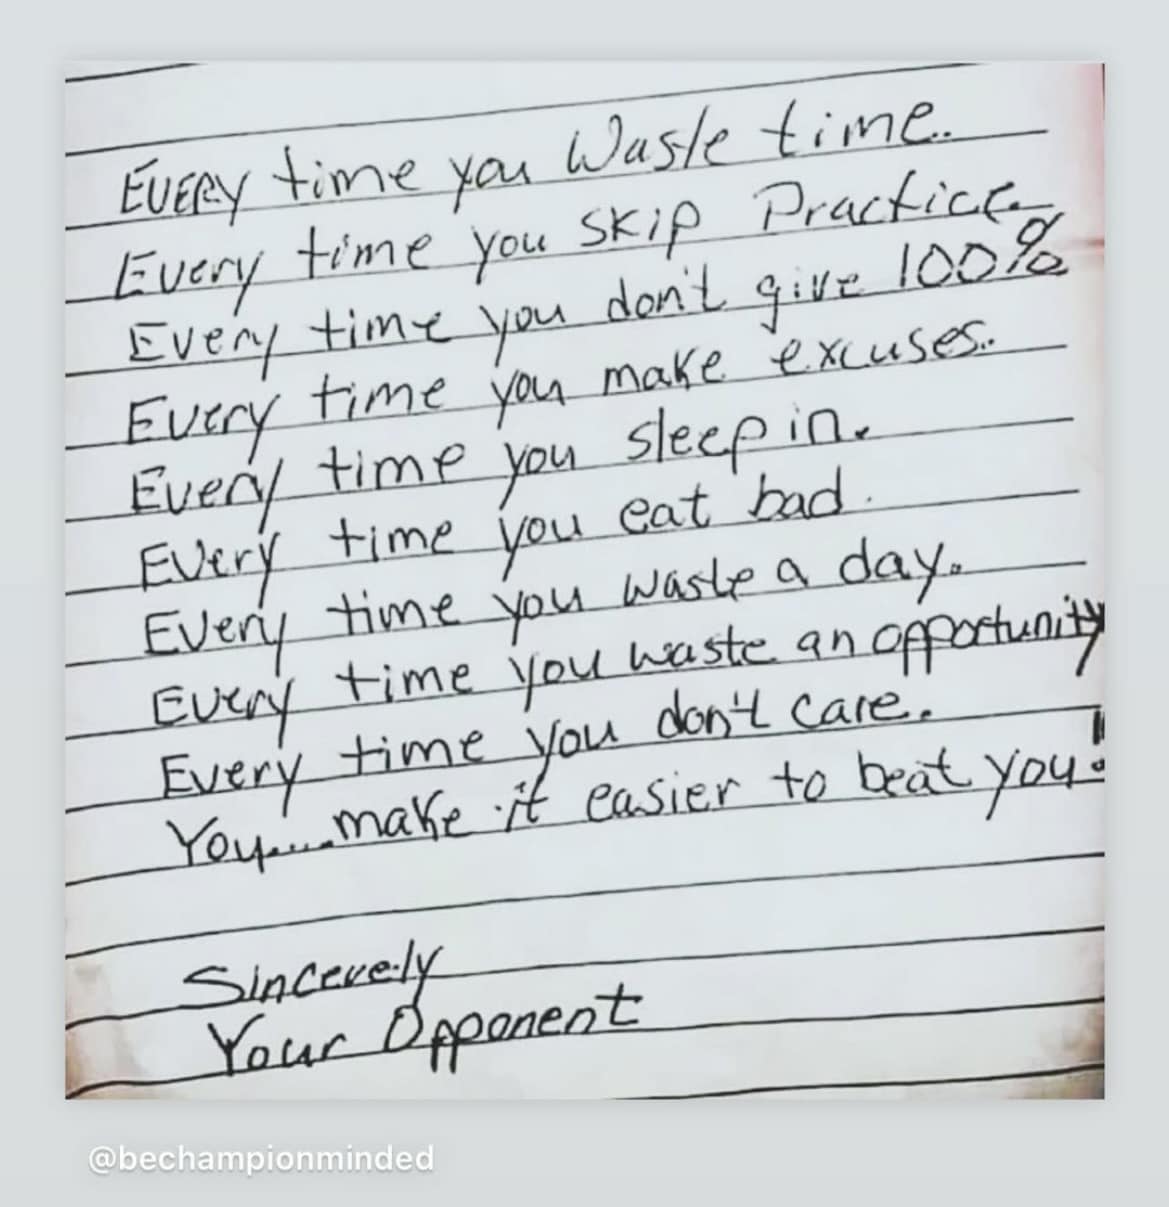 EVERY time you Waste time..
Every time you SKIP Practice.
Every time you don't give 100%
Every time you make excuses..
Every time you sleep in.
Every time you eat bad.
Every time you waste a day.
Every time you waste an opportunity
Every time you don't care.
You.....make it easier to beat you!
Sincerely
Your Opponent
@bechampionminded